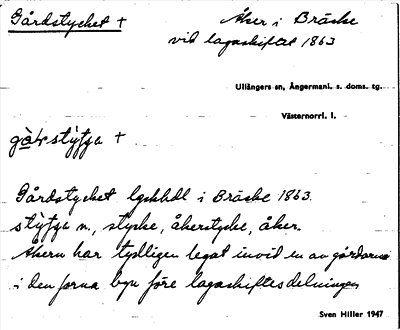 Gårdstycket +
Åker i Bräcke
vid lagaskiftet 1863
Ullångers sn, Ångermanl. s. doms. tg.
Västernorrl. l.
gå̀ɽstỳtja +
Gårdstycket lgskhdl i Bräcke 1863.
stỳtja n., stycke, åkerstycke, åker.
Åkern har tydligen legat invid en av gårdarna
i den forna byn före lagaskiftesdelningen
Sven Hiller 1947